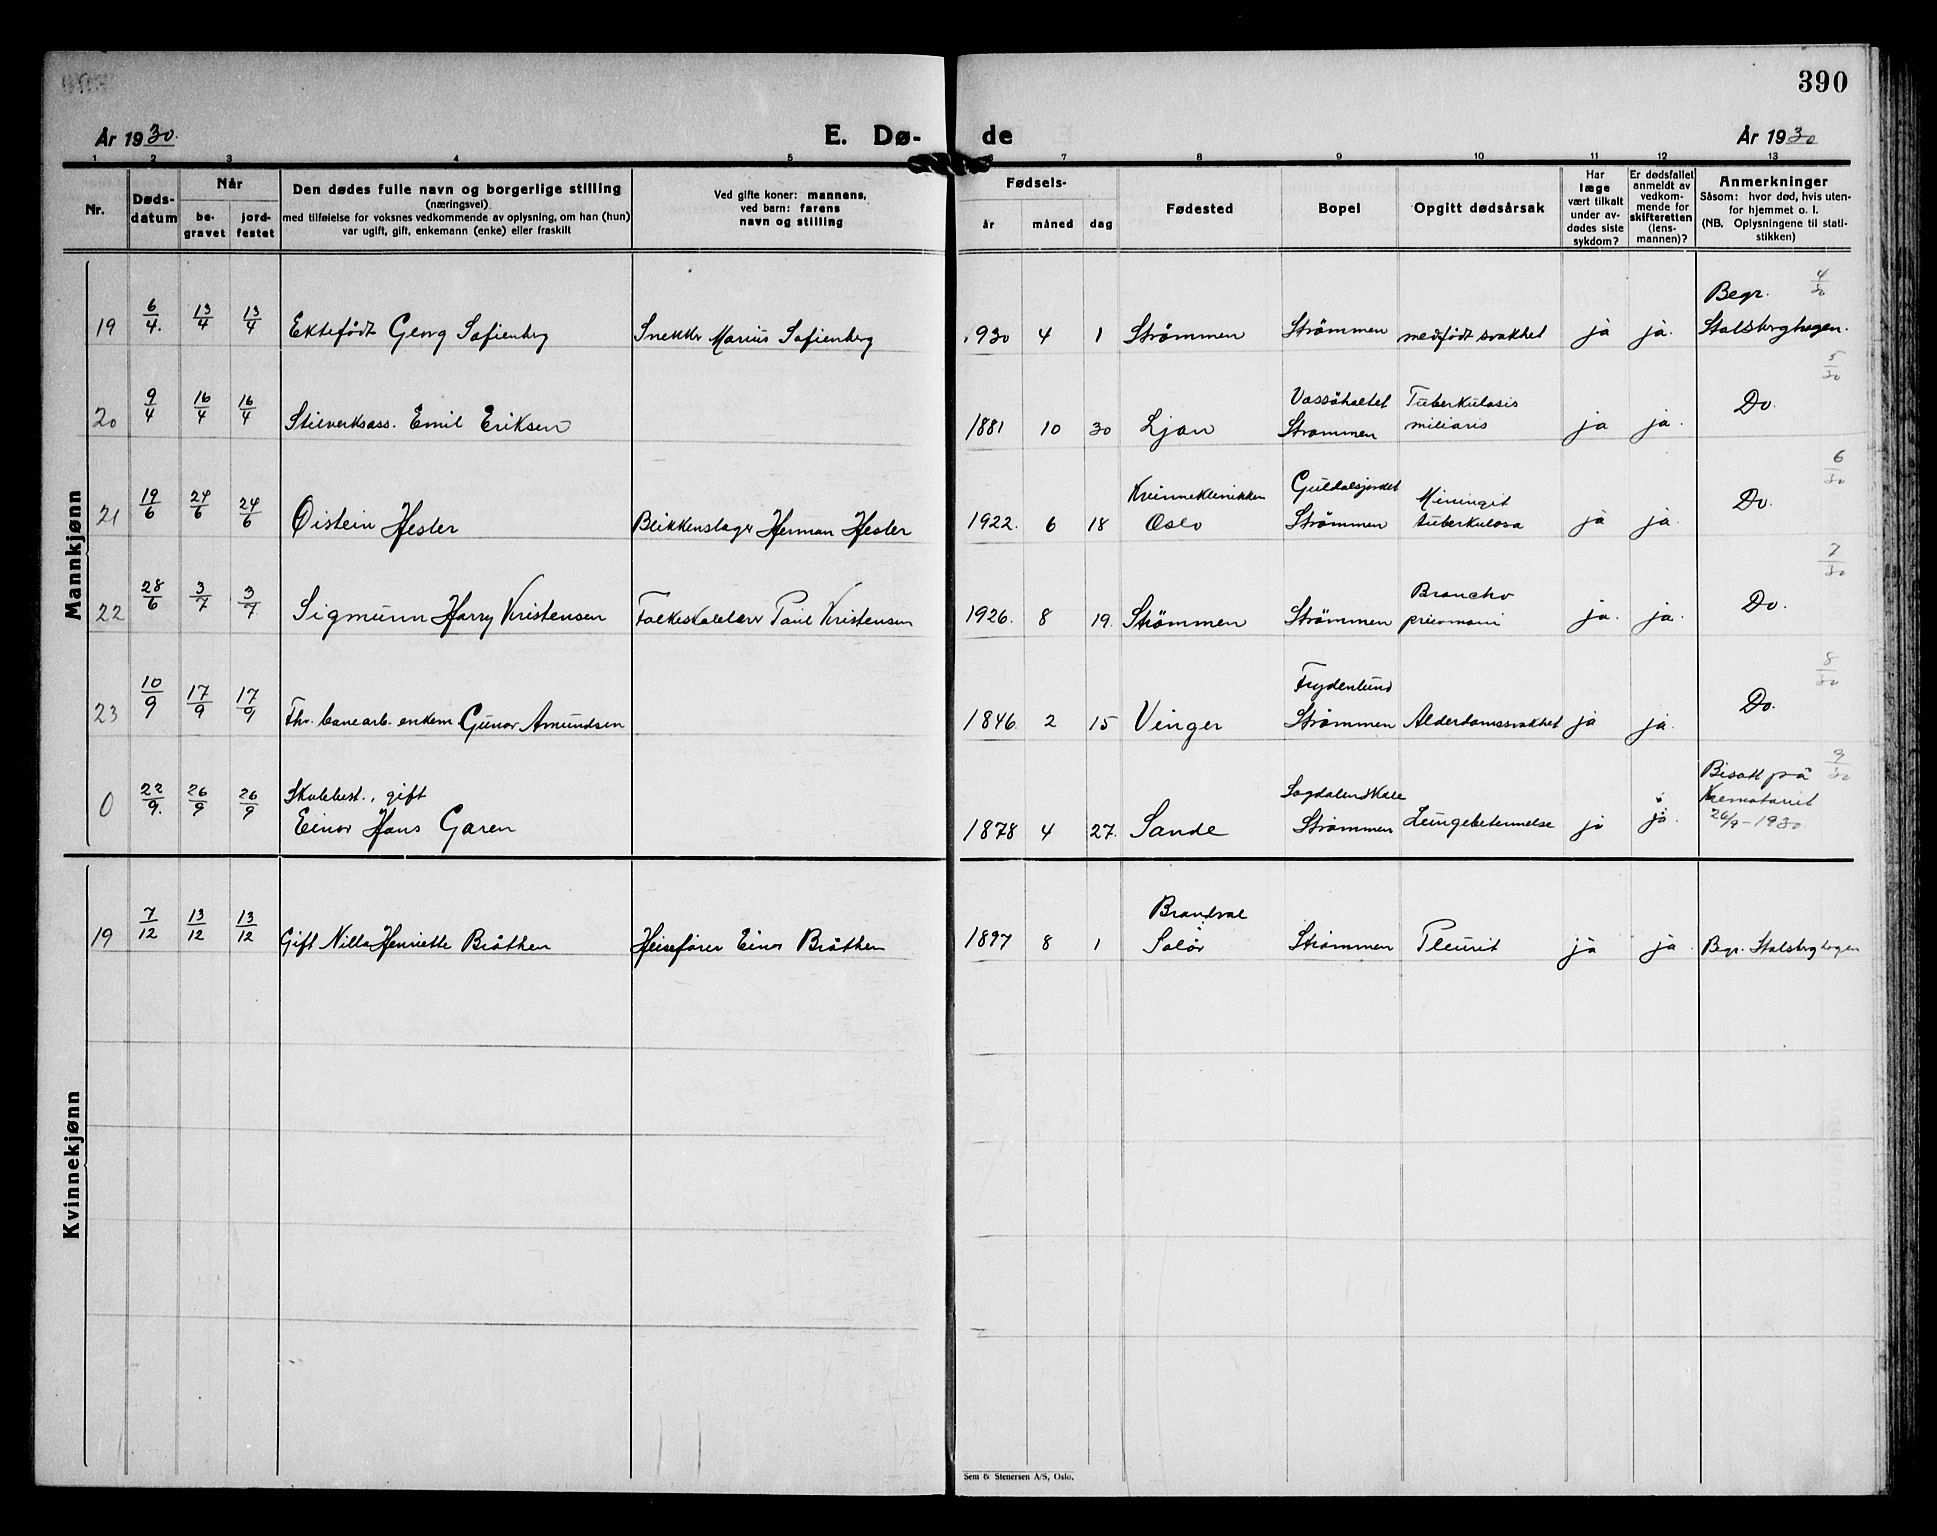 390
År 1930.
E. Dø-
de
År 1930
1 2 3 4 5 6 7 8 9 10 11 12 13
Nr.
Døds-
datum
Når
be-
gravet
jord-
festet
Den dødes fulle navn og borgerlige stilling
(næringsvei)
med tilføielse for voksnes vedkommende av oplysning, om han (hun)
var ugift, gift, enkemann (enke) eller fraskilt
Ved gifte koner: mannens,
ved barn: farens
navn og stilling
Fødsels-
år måned dag
Fødested
Bopel
Opgitt dødsårsak
Har
læge
vært tilkalt
under av-
dødes siste
sykdom?
Er dødsfallet
anmeldt av
vedkom-
mende for
skifteretten
(lens-
mannen)?
Anmerkninger
Såsom: hvor død, hvis uten-
for hjemmet o. l.
(NB. Oplysningene til stati-
stikken)
Mannkjønn
19 6/4. 13/4 13/4 Ektefødt Georg Sofienberg Snekker Marius Sofienberg 1930 4 1 Strömmen Strömmen medfødt svakhet ja ja. Begr. 4/30
Stalsberghagen.
20 9/4 16/4 16/4 Stilverksass. Emil Eriksen 1881 10 30 Ljan Vassöholtet
Strømmen Tuberkulosis
miliaris ja ja. Do. 5/30
21 19/6 24/6 24/6 Öistein Hester Blikkenslager Herman Hester 1922. 6 18 Kvinneklinikken
Oslo Guldalsjordet
Strömmen Miningit
tuberkulosa ja ja. Do. 6/30
22 28/6 3/7 3/7 Sigmunn Harry Kristensen Folkeskolelærer Paul Kristensen 1926. 8 19. Strömmen Strömmen Broncho
pneumoni ja. ja. Do. 7/30
23 10/9 17/9 17/9 Fhv. banearb. enkem. Gunar Amundsen 1846. 2 15 Vinger Frydenlund
Strömmen Alderdomssvakhet ja ja. Do. 8/30
0 22/9. 26/9 26/9 Skolebest., gift
Einar Hans Garen 1878 4 27. Sande Sagdalen skole
Strömmen Lungebetennelse ja ja. Bisatt på 9/30
Krematoriet
26/9-1930
Kvinnekjønn
19 7/12 13/12 13/12 Gift Nilla Henriette Bråthen Heisefører Einar Bråthen 1897 8 1 Brandval
Solör Strømmen Pleurit ja ja Begr. Stalsberghagen
Sem & Stenersen A/S, Oslo.